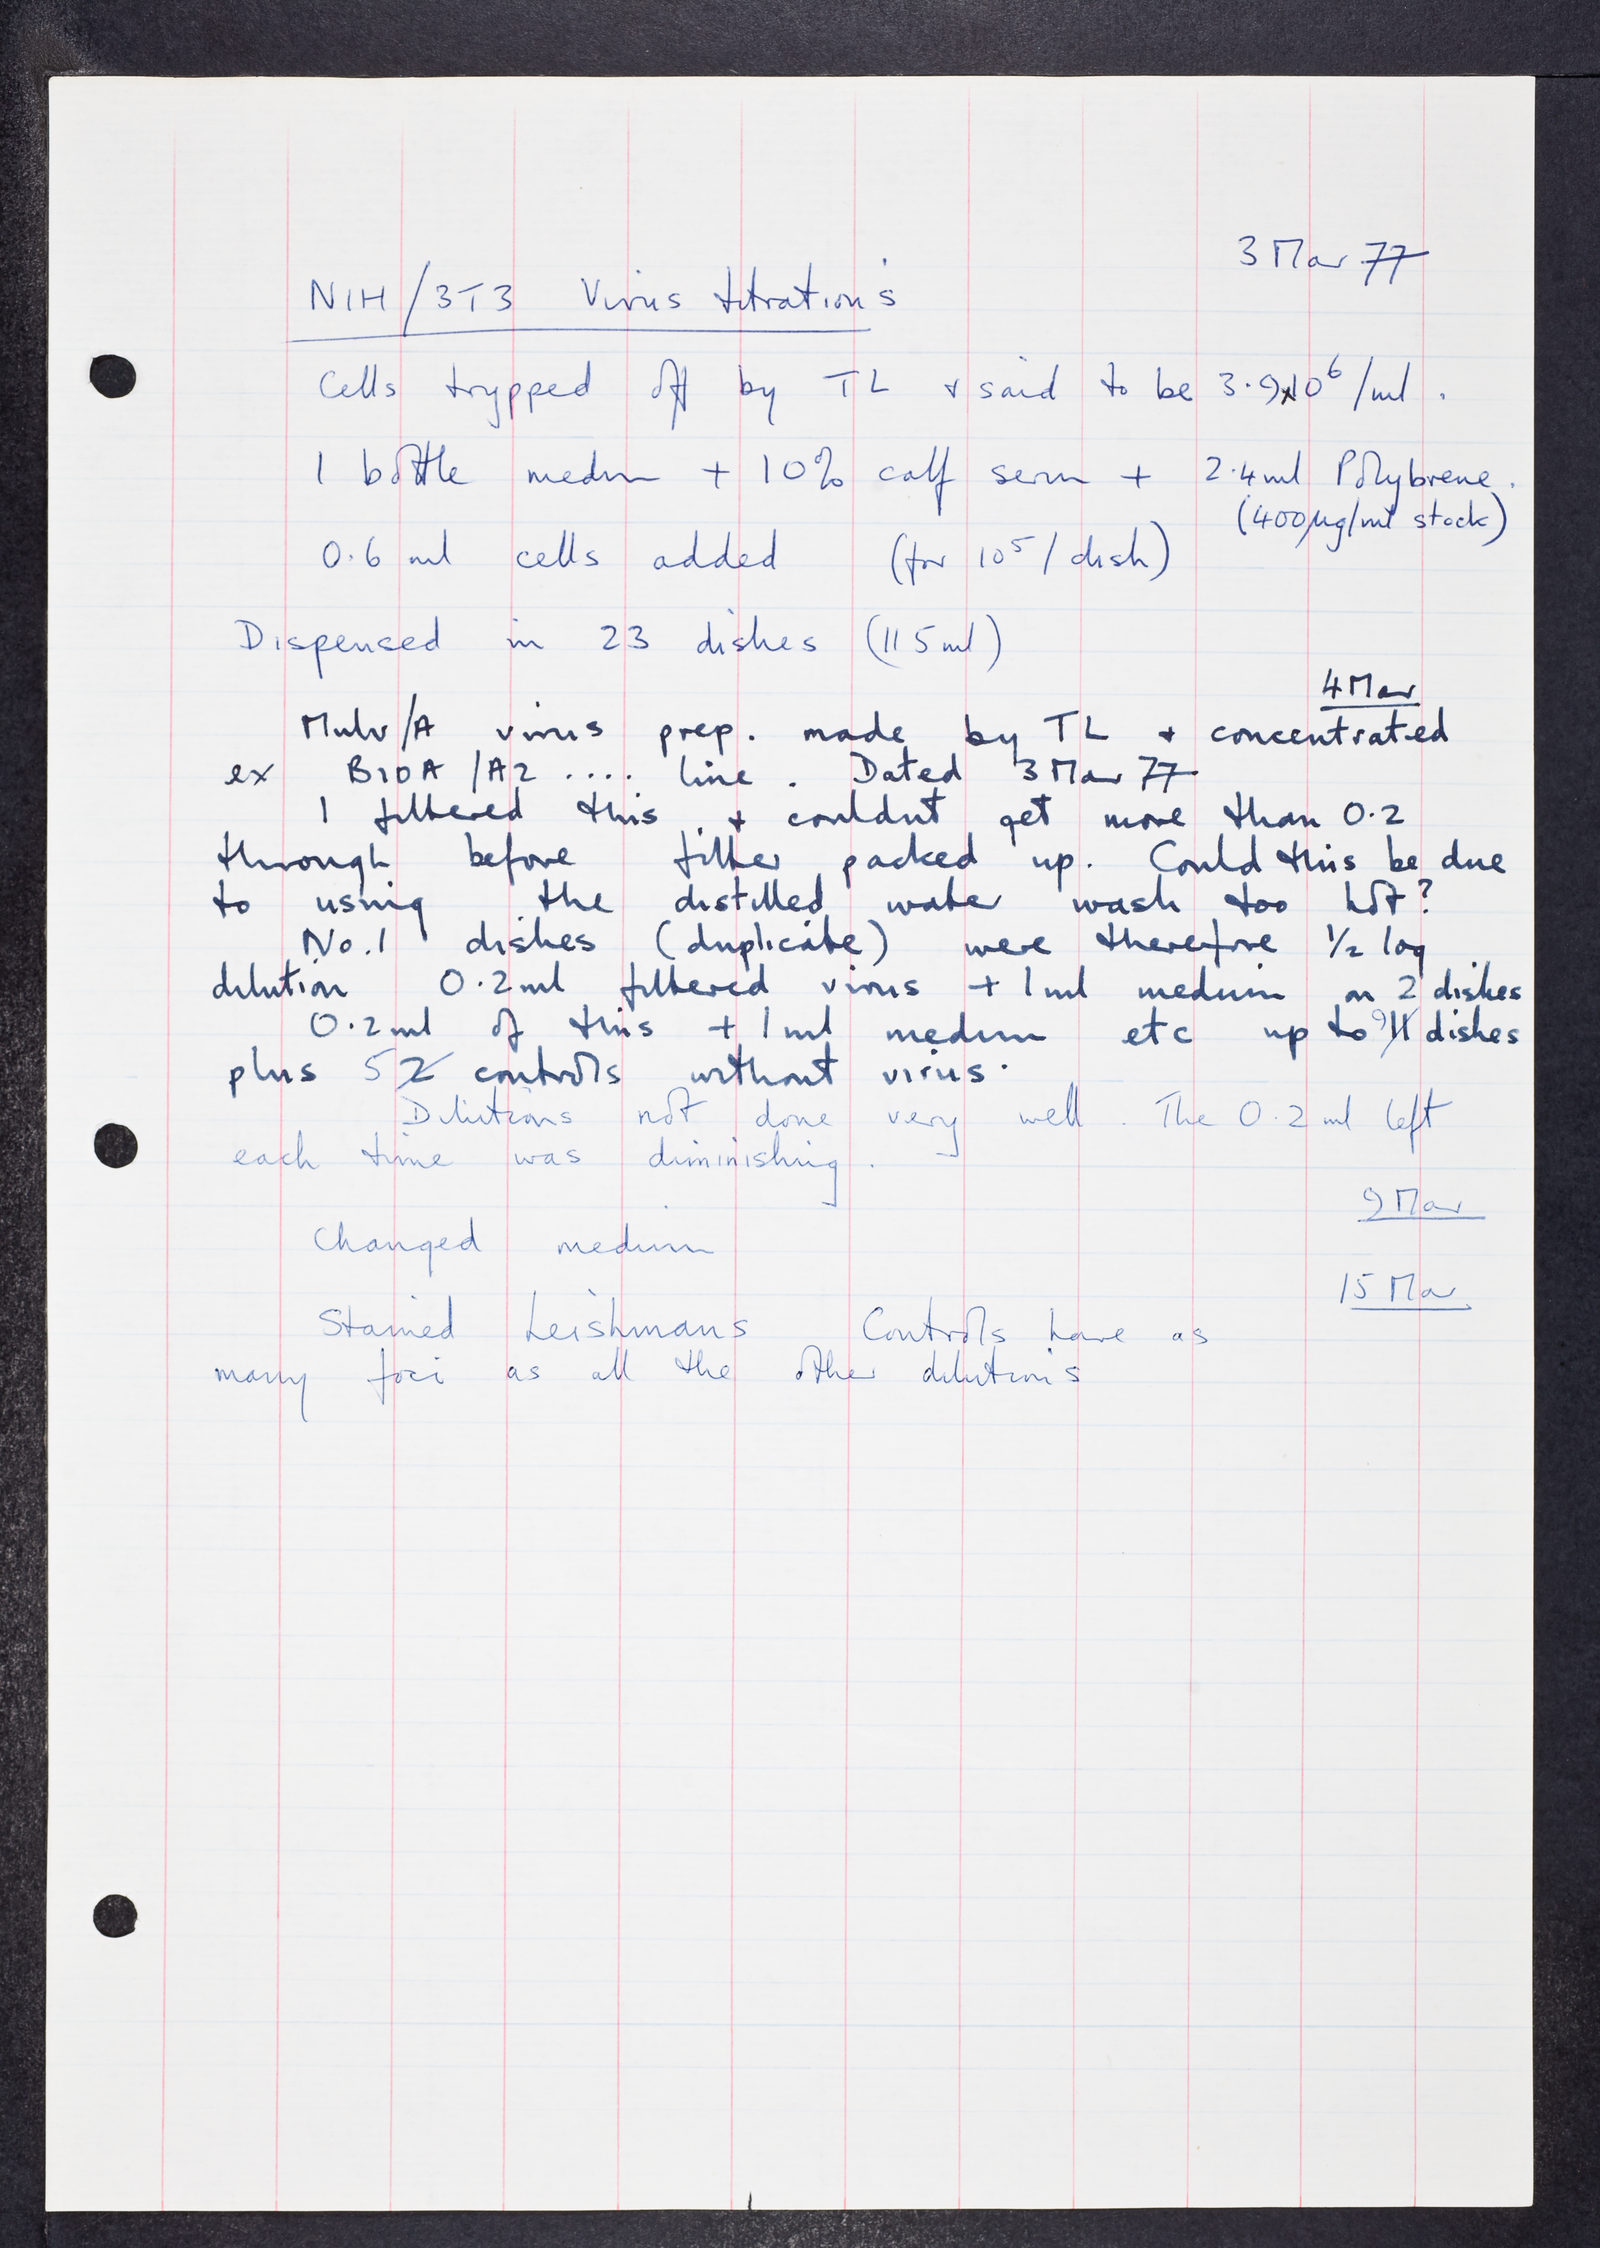 3 Mar 77
NIH/3T3 Virus titrations
Cells trypped off by TL + said to be 3.9x10⁶/ml.
1 bottle medm + 10% calf serm + 2.4ml Polybrene.
(400µg/ml stock)
0.6 ml cells added (for 10⁵/dish)
Dispensed in 23 dishes (115ml)
4 Mar
Mulv/A virus prep. made by TL + concentrated
ex B10A/A2 .... line. Dated 3 Mar 77
I filtered this + couldnt get more than 0.2
through before filter packed up. Could this be due
to using the distilled water wash too hot?
No.1 dishes (duplicate) were therefore ½ log
dilution 0.2ml filtered virus + 1ml medium on 2 dishes
0.2ml of this + 1ml medium etc up to 9 11 dishes
plus 5 2 controls without virus.
Dilutions not done very well. The 0.2 ml left
each time was diminishing.
9 Mar
Changed medium
15 Mar
Stained Leishmans Controls have as
many foci as all the other dilutions